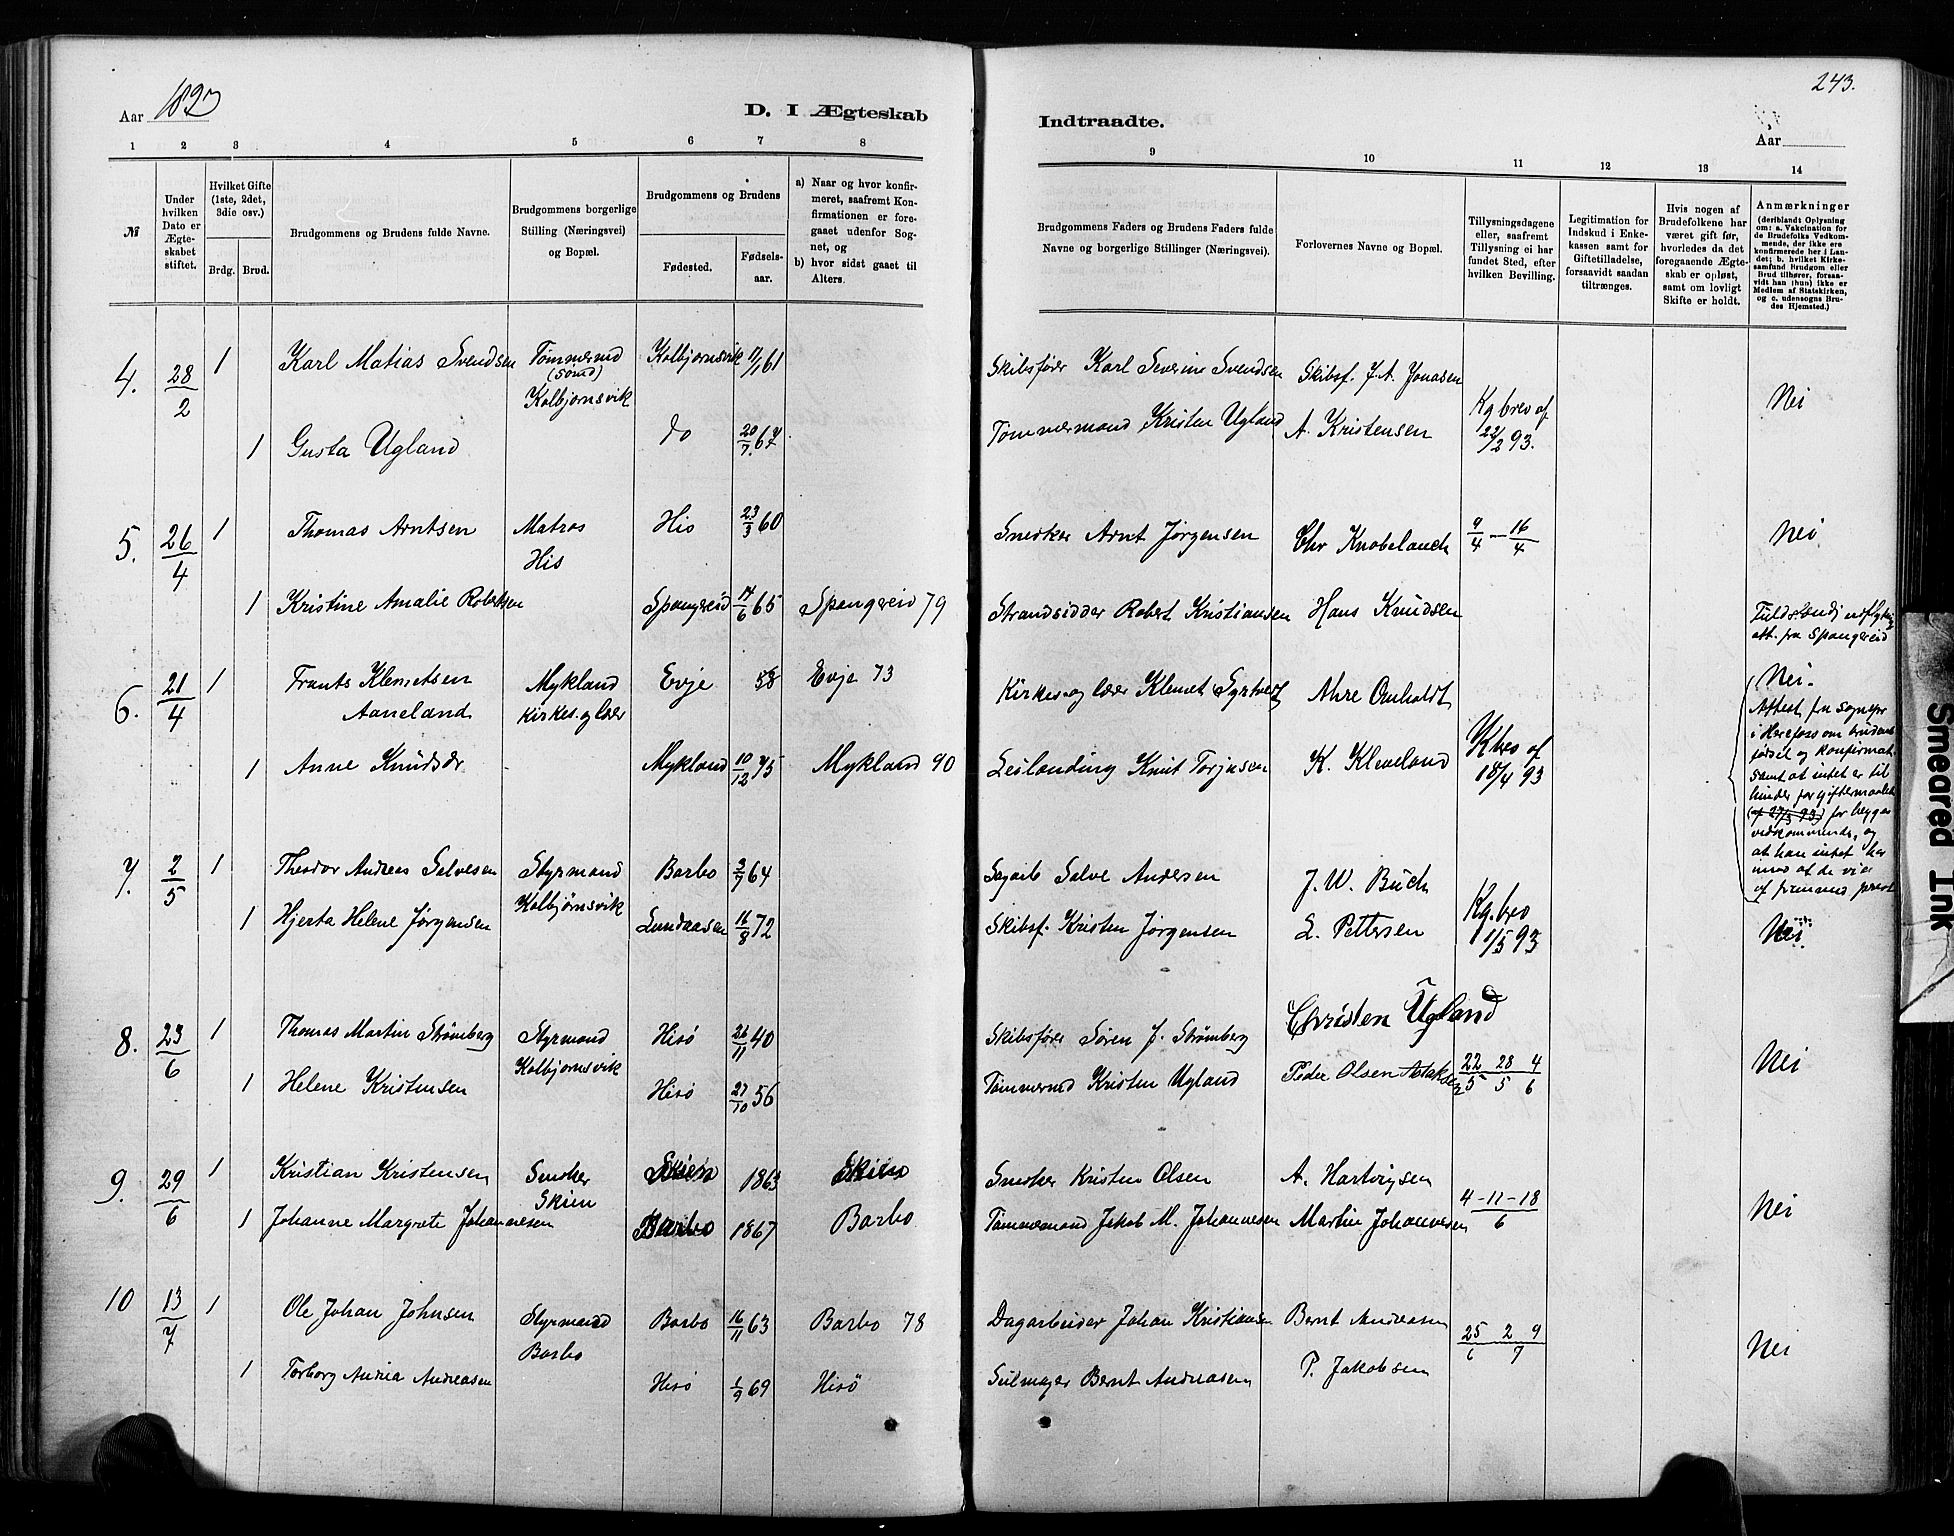 243.
Aar 1893
D. I Ægteskab
Indtraadte.
Aar
1 2 3 4 5 6 7 8
9 10 11 12 13 14
№
Under hvilken Dato er Ægteskabet stiftet.
Hvilket Gifte (1ste, 2det, 3die osv.)
Brdg. Brud.
Brudgommens og Brudens fulde Navne.
Brudgommens borgerlige Stilling (Næringsvei) og Bopæl.
Brudgommens og Brudens
Fødested.
Fødselsaar.
a) Naar og hvor konfirmeret, saafremt Konfirmationen er foregaaet udenfor Sognet, og
b) hvor sidst gaaet til Alters.
Brudgommens Faders og Brudens Faders fulde Navne og borgerlige Stillinger (Næringsvei).
Forlovernes Navne og Bopæl.
Tillysningsdagene eller, saafremt Tillysning ei har fundet Sted, efter hvilken Bevilling.
Legitimation for Indskud i Enkekassen samt for Giftetilladelse, forsaavidt saadan tiltrænges.
Hvis nogen af Brudefolkene har været gift før, hvorledes da det foregaaende Ægteskab er opløst, samt om lovligt Skifte er holdt.
Anmærkninger
(deriblandt Oplysning om: a. Vakcination for Brudefolks Vedkommende, der ikke ere konfirmerede her i Landet; b. hvilket Kirkesamfund Brudgom eller Brud tilhører, forsaavidt han (hun) ikke er Medlem af Statskirken, og c. udensogns Brudes Hjemsted.)
4. 28/2 1 Karl Matias Svendsen Tømmermd (Sømd) Kolbjørnsvik Kolbjørnsvik 11/1 61 Skibsfører Karl Severin Svendsen Skibsf. J. A. Jonasen Kg brev af 22/2 93. Nei
1 Gusta Ugland do 20/7 67 Tømmermand Kristen Ugland A. Kristensen
5. 26/4 1 Thomas Arntsen Matros His His 23/3 60 Snedker Arnt Jørgensen Chr Knobelauch 9/4 – 16/4 Nei
1 Kristine Amalie Robertsen Spangereid 14/6 65 Spangereid 79 Strandsidder Robert Kristiansen Hans Knudsen
att. fra Spangereid
6. 21/4 1 Frants Klemetsen Aaneland Mykland Kirkes. og lærer Evje 58 Evje 73 Kirkes. og lærer Klemet Ahre Omholdt Kbrev af 18/4 93 Nei.
1 Anne Knudsdr Mykland 10/12 75 Mykland 90 Leilænding Knut Torjusen K. Kleveland
Attest fra sognepr
i Herefoss om brudens
fødsel og konfirmat.
samt at intet er til
hinder for giftermaalet
(af 27/3 93) for begges
vedkommende, og
at han intet har
imod at de vies
af fremmed prest
7. 2/5 1 Theodor Andreas Salvesen Styrmand Kolbjørnsvik Barbo 3/7 64 Sagarb Salve Andersen J. W. Buch Kg. brev 1/5 93 Nei
1 Hjerta Helene Jørgensen Lundaasen 16/8 72 Skibsf. Kristen Jørgensen L. Pettersen
8. 23/6 1 Thomas Martin Strømberg Styrmand Kolbjørnsvik Hisø 26/11 40 Skibsfører Søren J. Strømberg Christen Ugland 22/5 28/5 4/6 Nei
1 Helene Kristensen Hisø 27/10 56 Tømmermd Kristen Ugland Peder Olsen
9. 29/6 1 Kristian Kristensen Snedker Skien Skien 1863 Skien Snedker Kristen Olsen A. Hartvigsen 4–11–18/6 Nei
1 Johanne Margrete Johannesen Barbo 1867 Barbo Tømmermand Jakob M. Johannesen Martin Johannesen
10 13/7 1 Ole Johan Johnsen Styrmand Barbo Barbo 16/11 63 Barbo 78 Dagarbeider Johan Kristiansen Bernt Andreasen 25/6 2 9/7 Nei
1 Torborg Andrea Andreasen Hisø 1/9 69 Hisö Seilmager Bernt Andreasen P. Jakobsen
Smeared Ink